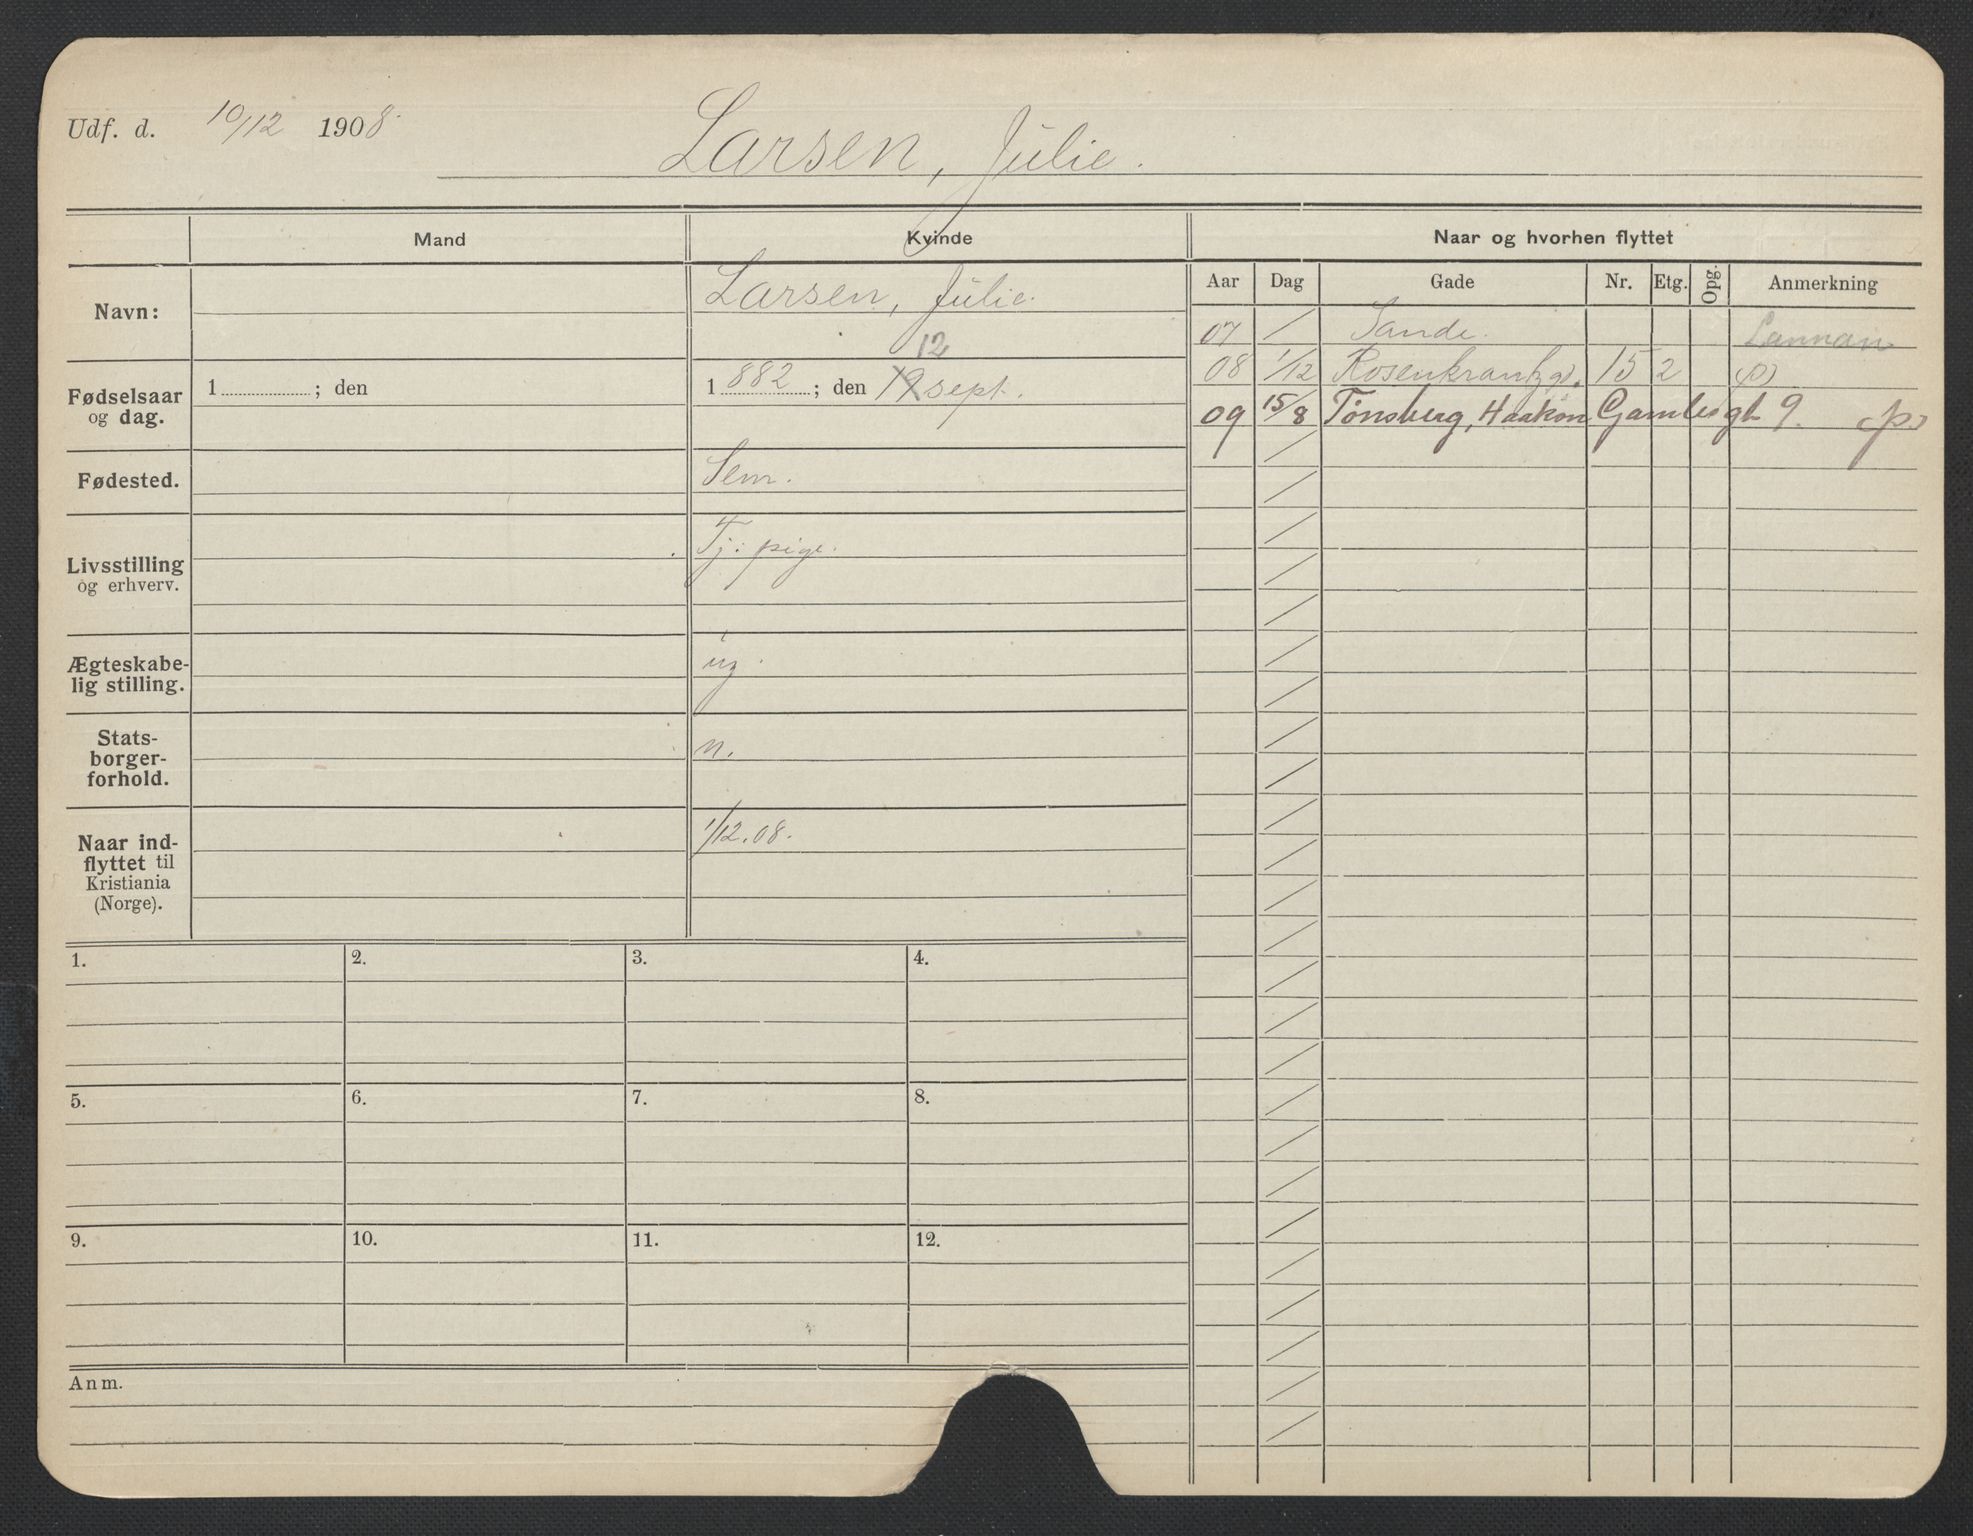 Udf. d. 10/12 1908
Larsen, Julie.
Mand
Kvinde
Naar og hvorhen flyttet
Aar Dag Gade Nr. Etg. Opg. Anmerkning
Navn:
Larsen, Julie.
07 / Sande.
08 1/12 Rosenkrantzg. 15 2 (p)
09 15/8 Tønsberg, Haakon Gamlesgt 9. (p)
Fødselsaar
og dag.
1 ; den
12
1 882 ; den 19 sept.
Fødested.
Sem.
Livsstilling
og erhverv.
Tj: pige.
Ægteskabe-
lig stilling.
ug.
Stats-
borger-
forhold.
n.
Naar ind-
flyttet til
Kristiania
(Norge).
1/12.08.
1. 2. 3. 4.
5. 6. 7. 8.
9. 10. 11. 12.
Anm.